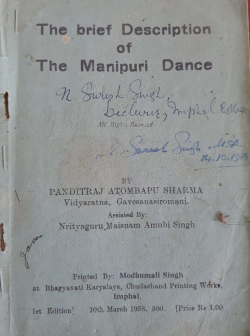 The brief Description
of
The Manipuri Dance
N. Suresh Singh,
Imphal
All Rights Reserved
BY:
PANDITRAJ ATOMBAPU SHARMA
Vidyaratna, Gavesanasiromani.
Assisted By:
Nrityaguru Maisnam Amubi Singh
Printed By: Modhumoli Singh
at Bhagyavati Karyalaya, Chudachand Printing Works,
Imphal.
1st Edition] 10th March 1958, 500. [Price Re 1.00